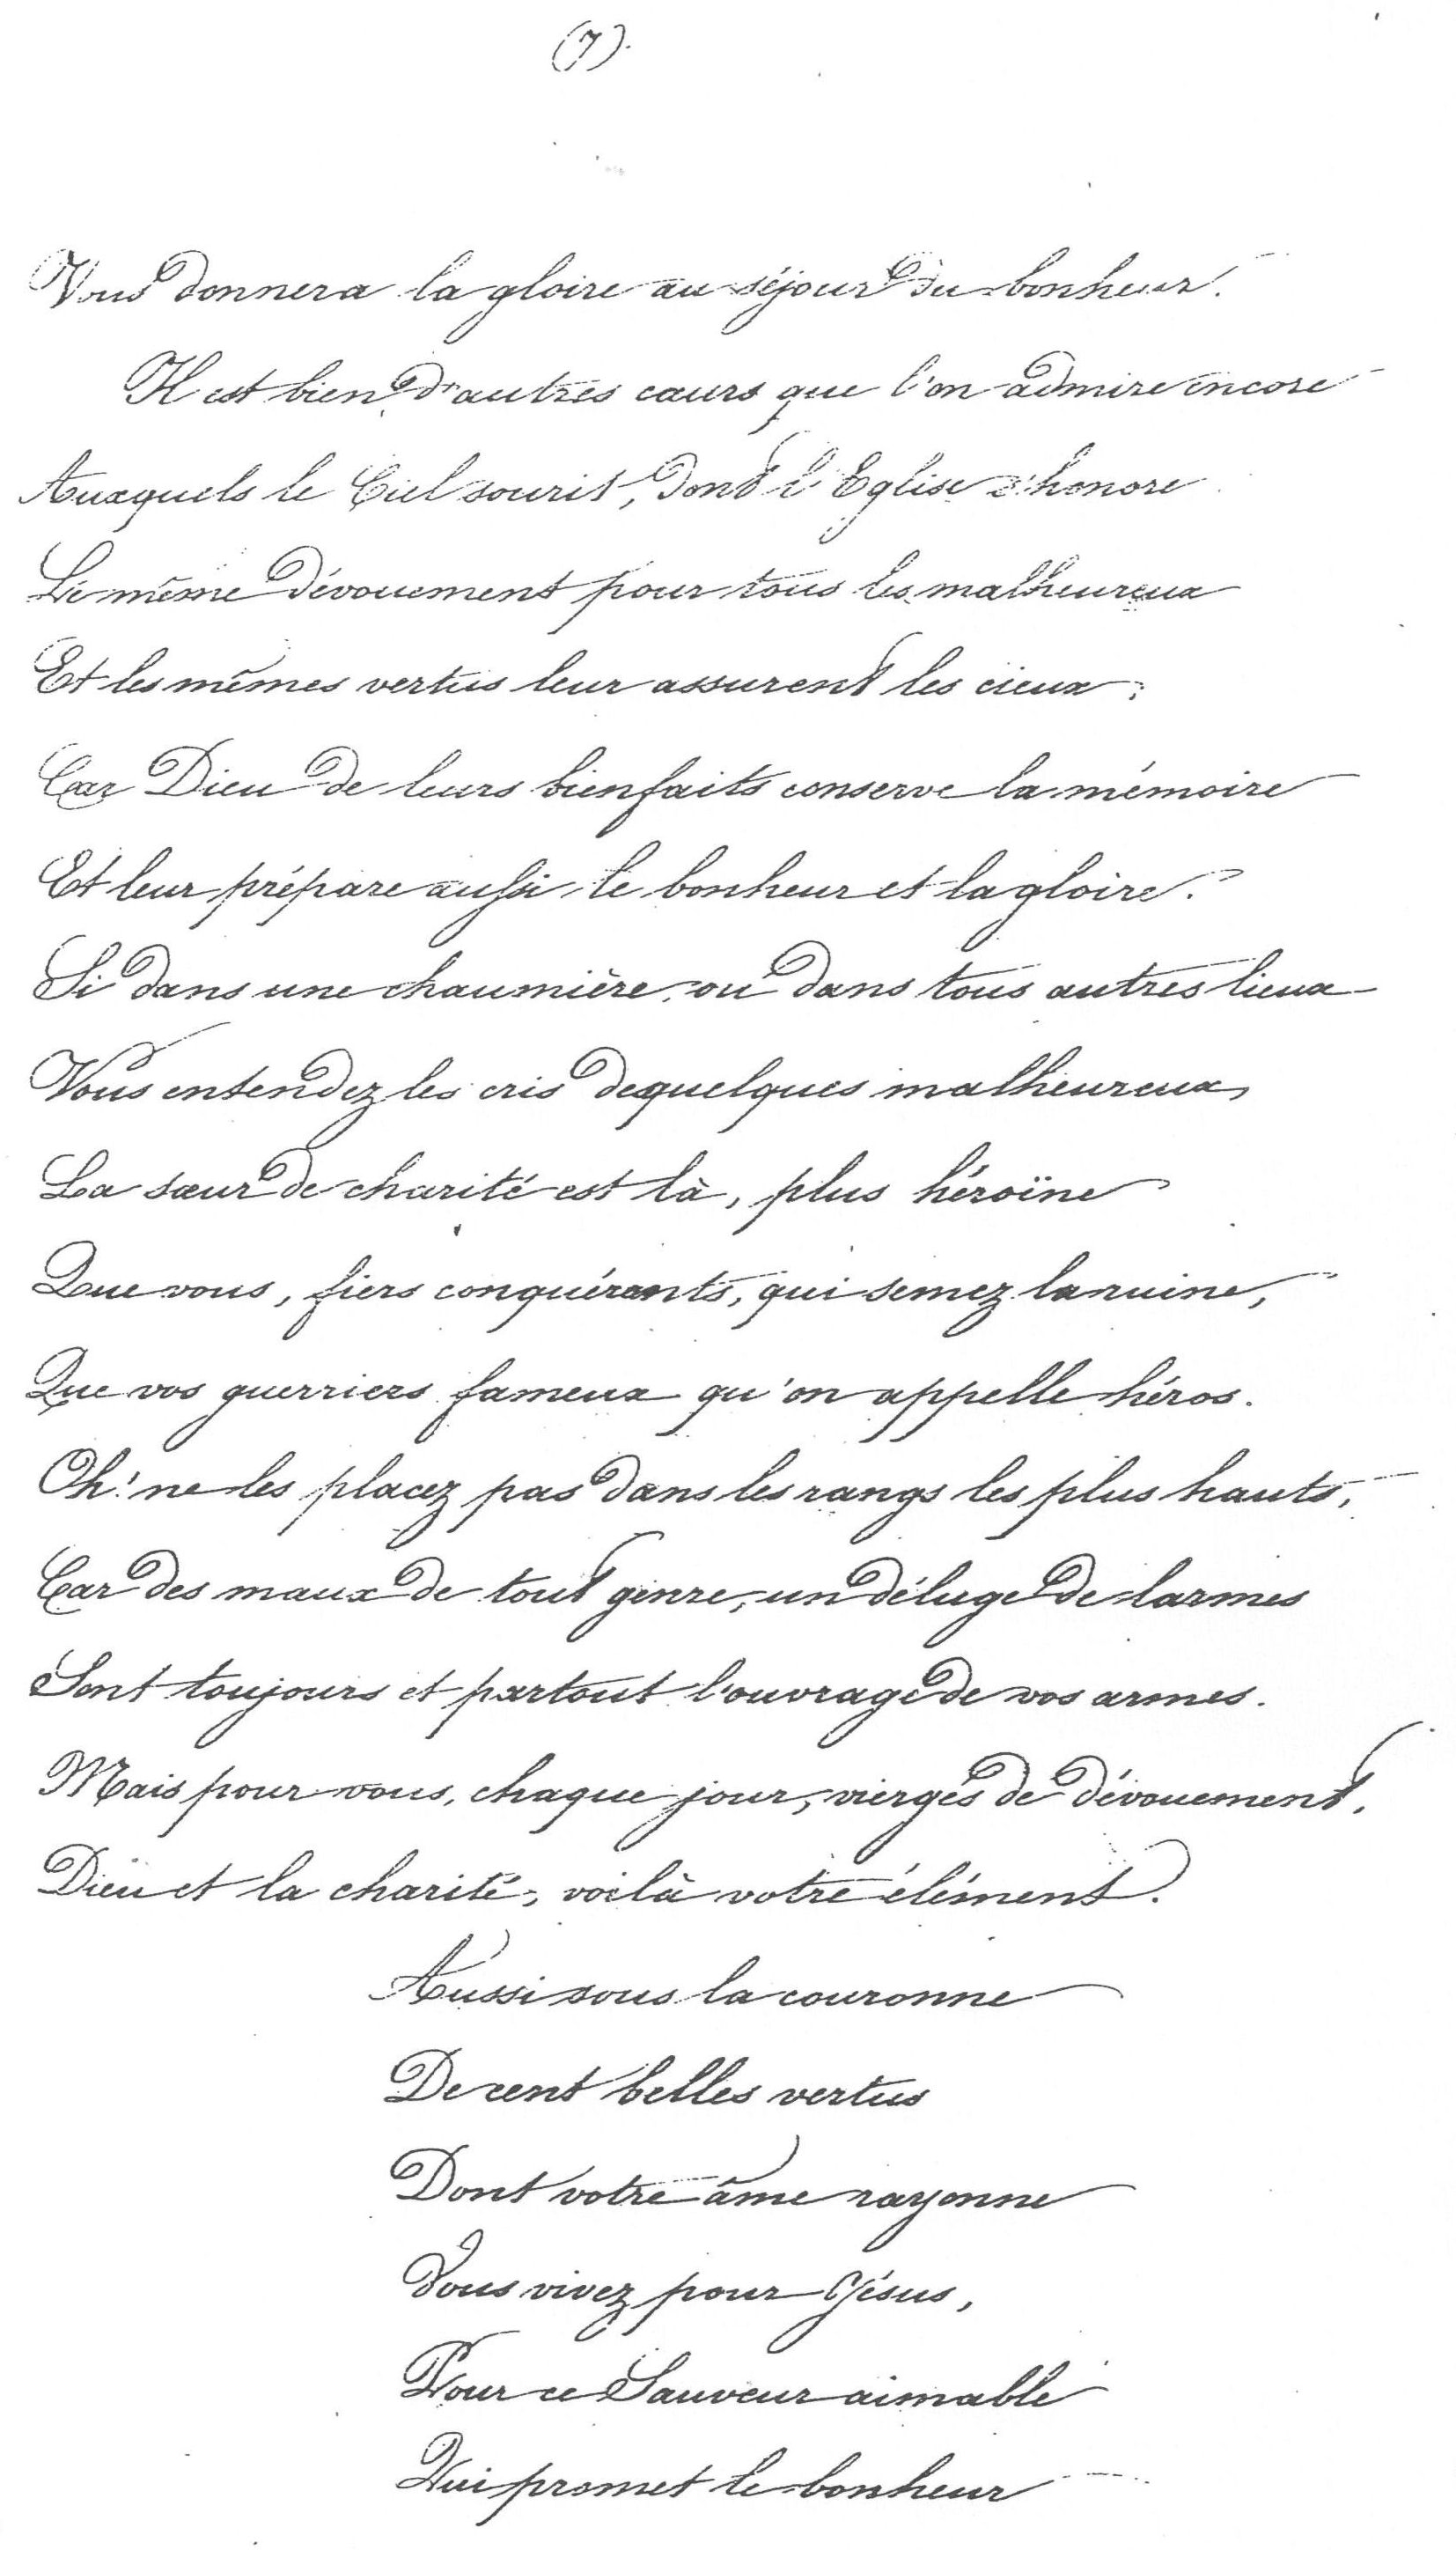 (7).
Vous donnera la gloire au séjour du bonheur.
Il est bien d'autres cœurs que l'on admire encore
Auxquels le Ciel sourit, dont l'Eglise s'honore
Le même dévouement pour tous les malheureux
Et les mêmes vertus leur assurent les cieux;
Car Dieu de leurs bienfaits conserve la mémoire
Et leur prépare aussi le bonheur et la gloire.
Si dans une chaumière, ou dans tous autres lieux
Vous entendez les cris de quelques malheureux,
La sœur de charité est là, plus héroïne
Que vous, fiers conquérants, qui semez la ruine,
Que vos guerriers fameux qu'on appelle héros.
Oh! ne les placez pas dans les rangs les plus hauts,
Car des maux de tout genre, un déluge de larmes
Sont toujours et partout l'ouvrage de vos armes.
Mais pour vous, chaque jour, vierges de dévouement,
Dieu et la charité, voilà votre élément.
Aussi sous la couronne
De cent belles vertus
Dont votre âme rayonne
Vous vivez pour Jésus,
Pour ce Sauveur aimable
Qui promet le bonheur